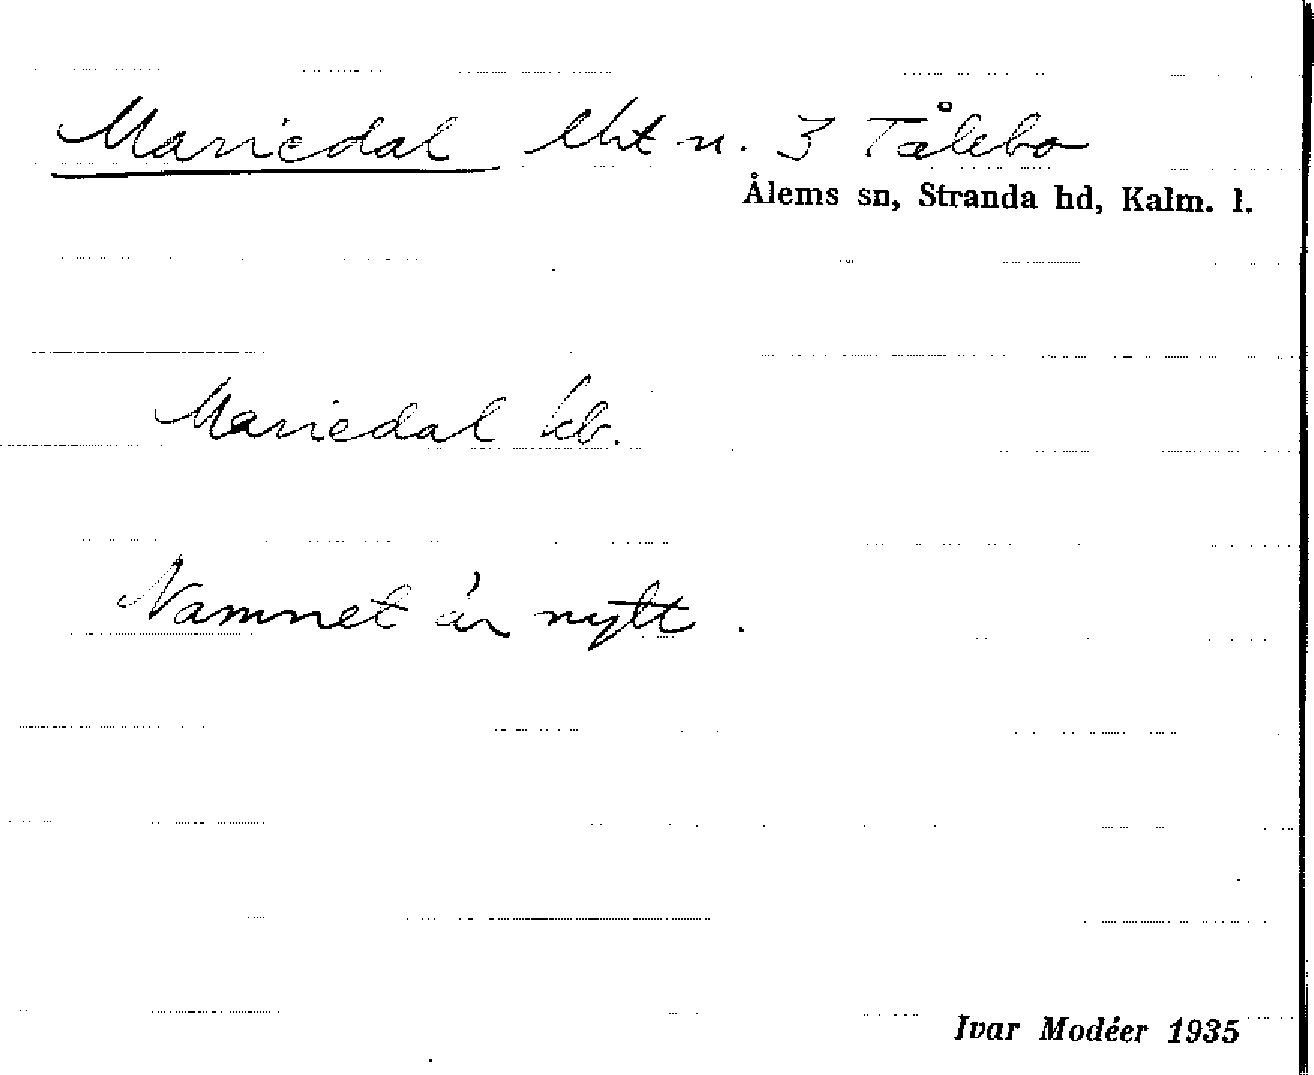 Mariedal lht n. 3 Tålebo
Ålems sn, Stranda hd, Kalm. l.
Mariedal kb.
Namnet är nytt.
Ivar Modéer 1935